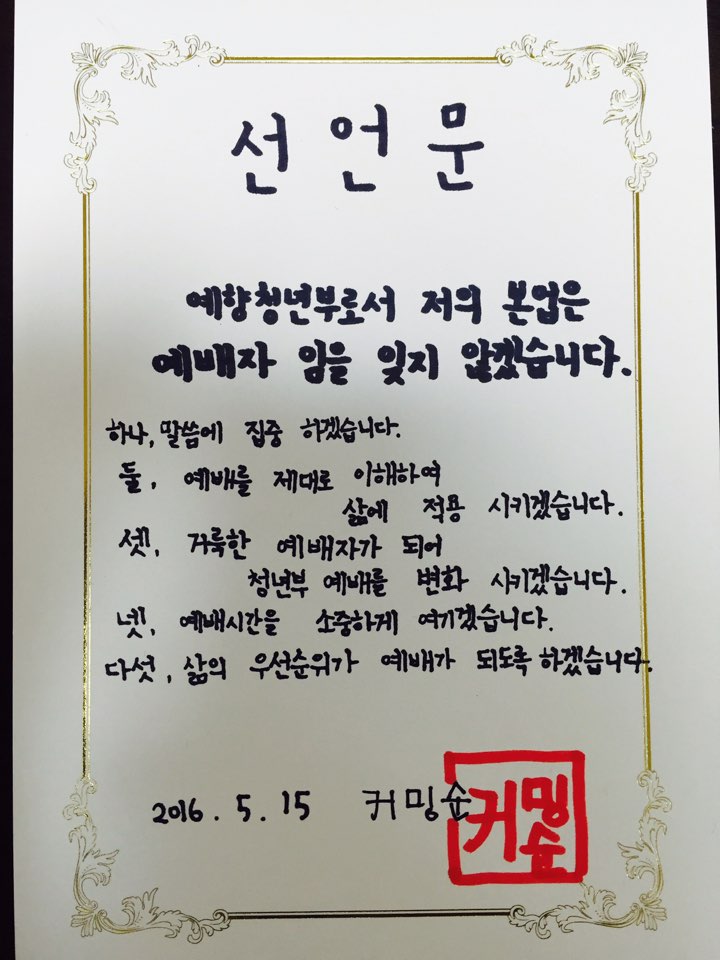 선언문
예향청년부로서 저의 본업은
예배자 임을 잊지 않겠습니다.
하나, 말씀에 집중 하겠습니다.
둘, 예배를 제대로 이해하여
삶에 적용 시키겠습니다.
셋, 거룩한 예배자가 되어
청년부 예배를 변화 시키겠습니다.
넷, 예배시간을 소중하게 여기겠습니다.
다섯, 삶의 우선순위가 예배가 되도록 하겠습니다.
2016. 5. 15 커밍순
커밍순